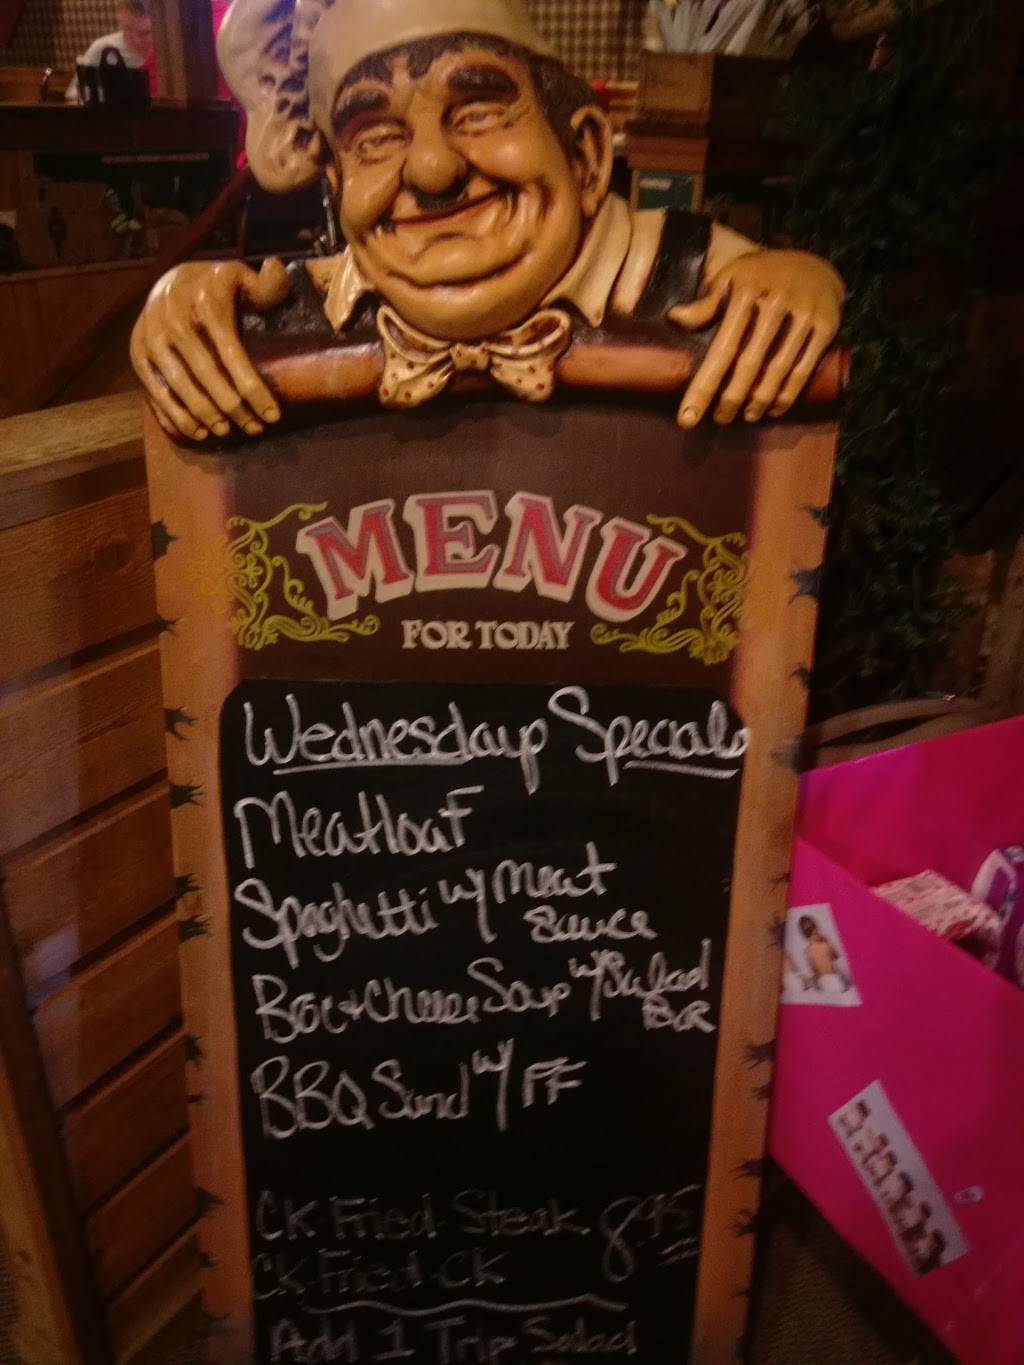 MENU
FOR TODAY
Wednesday Specials
Meatloaf
Spaghetti w/ Meat
Sauce
Broc + Cheese Soup w/ Salad
Bar
BBQ Sand w/ FF
CK Fried Steak 8.95
CK Fried CK
Add 1 Trip Salad